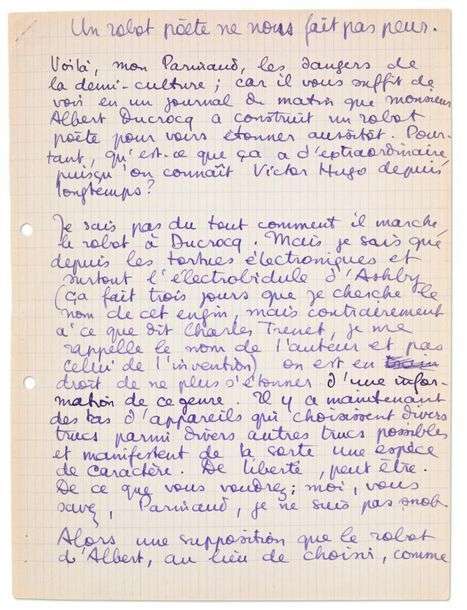 Un robot poète ne nous fait pas peur.
Voilà, mon Parinaud, les dangers de
la demi-culture ; car il vous suffit de
voir en un journal du matin que monsieur
Albert Ducrocq a construit un robot
poète pour vous étonner aussitôt. Pour-
tant, qu'est-ce que ça a d'extraordinaire
puisqu'on connaît Victor Hugo depuis
longtemps ?
Je sais pas du tout comment il marche
le robot à Ducrocq. Mais je sais que
depuis les tortues électroniques et
surtout l'électrobidule d'Ashby
(ça fait trois jours que je cherche le
nom de cet engin, mais contrairement
à ce que dit Charles Trenet, je me
rappelle le nom de l'auteur et pas
celui de l'invention) on est en
droit de ne plus s'étonner d'une infor-
mation de ce genre. Il y a maintenant
des tas d'appareils qui choisissent divers
trucs parmi divers autres trucs possibles
et manifestent de la sorte une espèce
de caractère. De liberté, peut être.
De ce que vous voudrez ; moi, vous
savez, Parinaud, je ne suis pas snob.
Alors une supposition que le robot
d'Albert, au lieu de choisir, comme